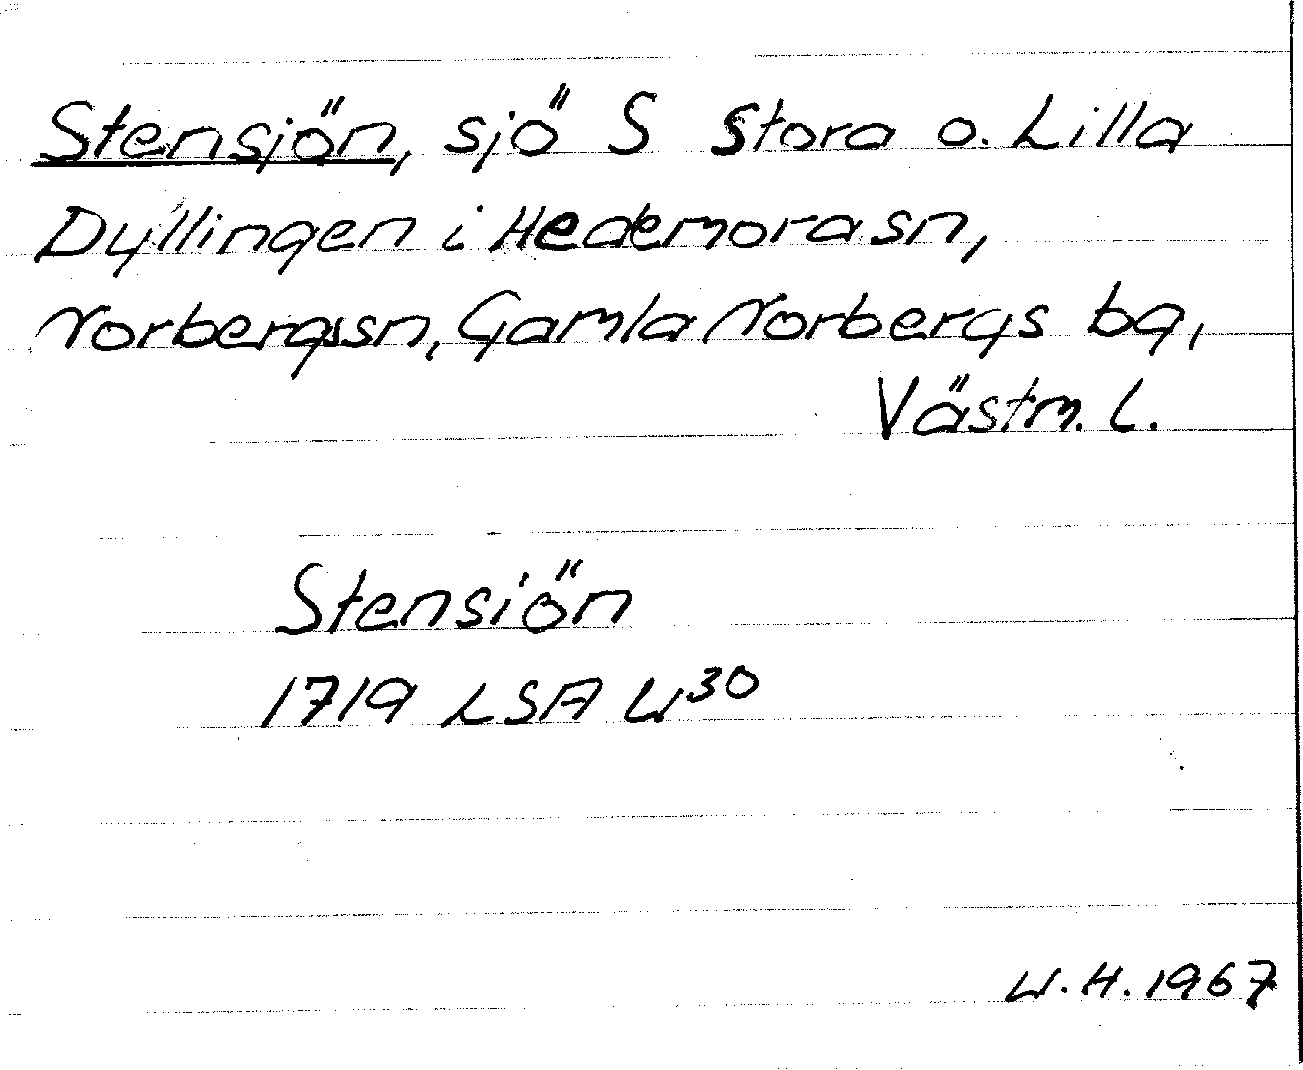 Stensjön, sjö S Stora o. Lilla
Dyllingen i Hedemora sn,
Norbergs sn, Gamla Norbergs bg,
Västm. l.
Stensiön
1719 LSA U30
U.H. 1967